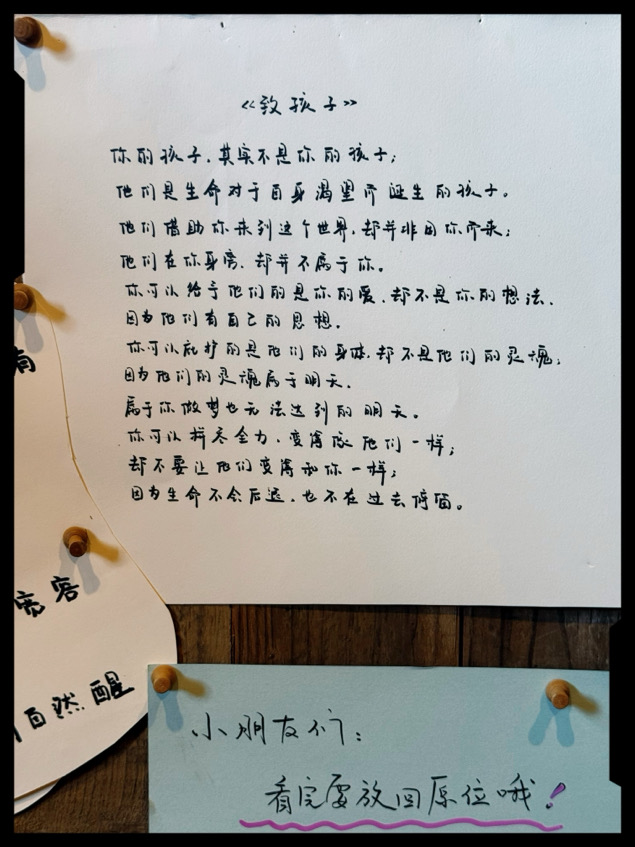 《致孩子》
你的孩子，其实不是你的孩子；
他们是生命对于自身渴望而诞生的孩子。
他们借助你来到这个世界，却并非因你而来；
他们在你身旁，却并不属于你。
你可以给予他们的是你的爱，却不是你的想法，
因为他们有自己的思想。
你可以庇护的是他们的身体，却不是他们的灵魂；
因为他们的灵魂属于明天，
属于你做梦也无法达到的明天。
你可以拼尽全力，变得像他们一样；
却不要让他们变得和你一样；
因为生命不会后退，也不在过去停留。
宽容
自然醒
小朋友们：
看完要放回原位哦！